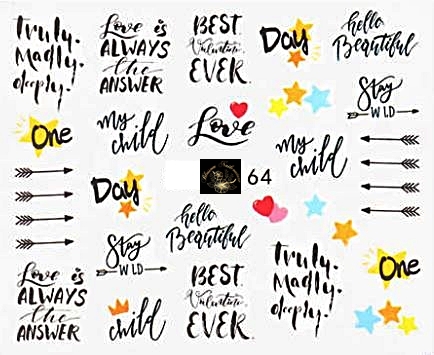 truly.
Madly.
deeply.
Love is
ALWAYS
the
ANSWER
BEST.
Valentine.
EVER.
Day
hello
Beautiful
Stay
WLD
One
my
child
Love
my
child
64
Day
hello
Beautiful
Stay
WLD
truly.
Madly.
deeply.
One
Love is
ALWAYS
the
ANSWER
child
BEST.
Valentine.
EVER.